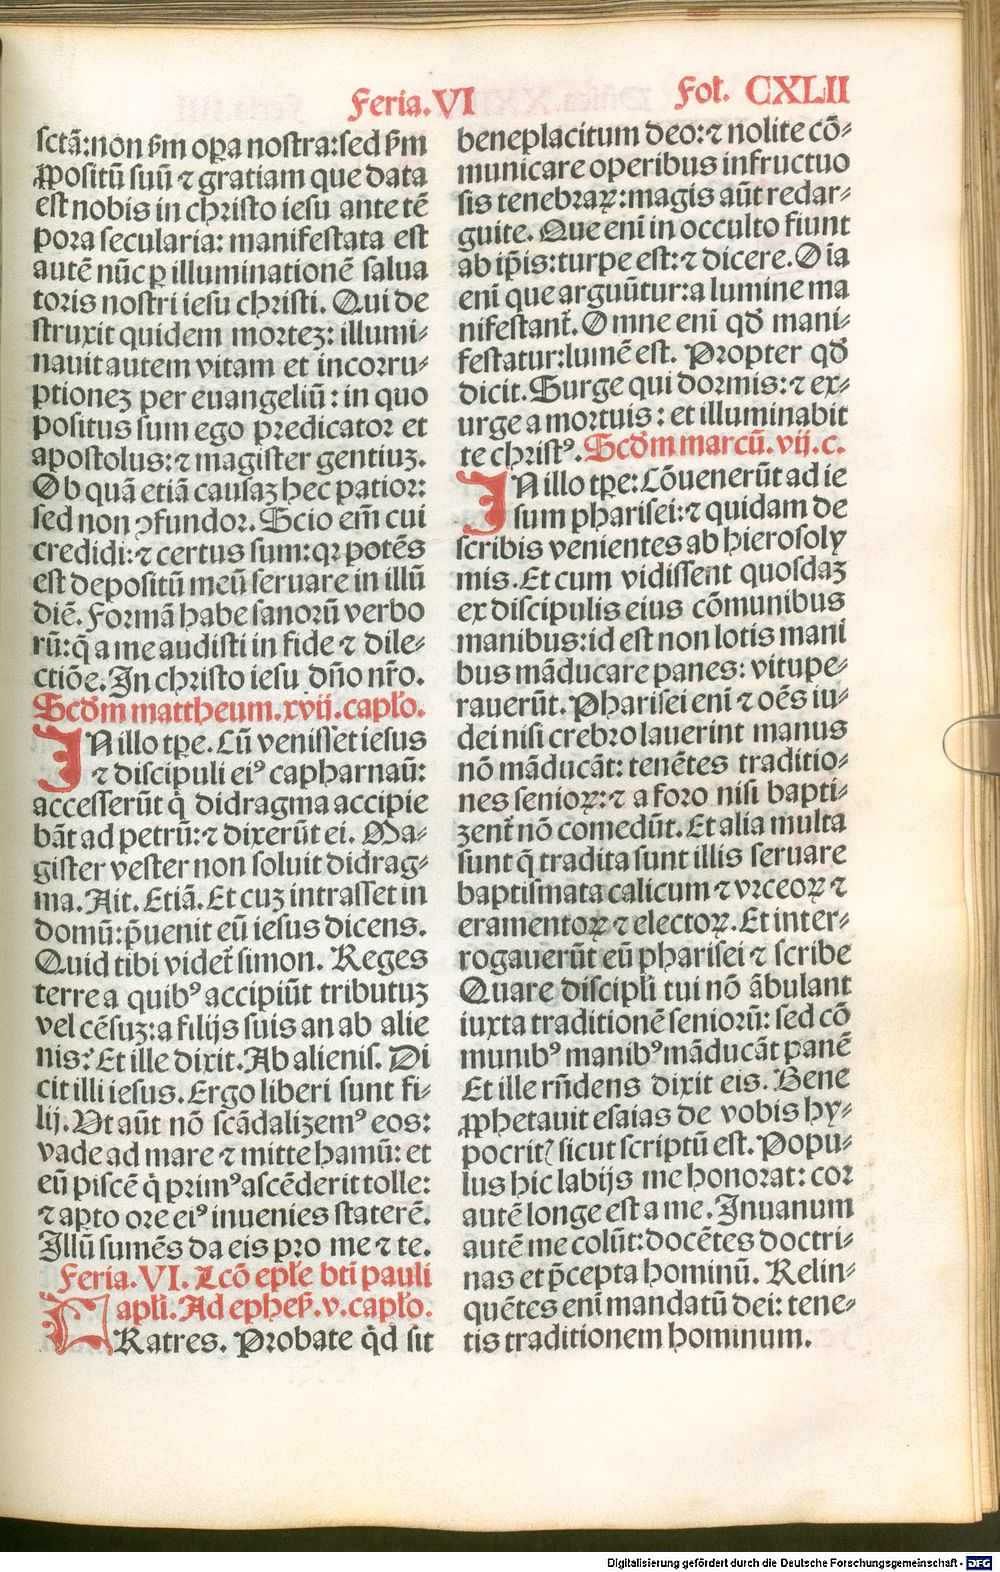 Feria.VI
Fol. CXLII
sctã:non ẞm oꝑa nostra:sed ẞm
ꝓpositũ suũ ⁊ gratiam que data
est nobis in christo iesu ante tẽ
pora secularia: manifestata est
autẽ nũc ꝑ illuminationẽ salua
toris nostri iesu christi. Qui de
struxit quidem mortez: illumi⸗
nauit autem vitam et incorru⸗
ptionez per euangeliũ: in quo
positus sum ego predicator et
apostolus: ⁊ magister gentiuz.
Ob quã etiã causaz hec patior:
sed non ꝯfundor. Scio em̃ cui
credidi: ⁊ certus sum:qꝛ potẽs
est depositũ meũ seruare in illũ
diẽ. Formã habe sanorũ verbo
rũ:q̃ a me audisti in fide ⁊ dile⸗
ctiõe. In christo iesu dño nr̃o.
Scďm mattheum.xvij.capło.
IN illo tꝑe. Cũ venisset iesus
⁊ discipuli eiꝰ capharnaũ:
accesserũt q̇ didragma accipie
bãt ad petrũ: ⁊ dixerũt ei. Ma⸗
gister vester non soluit didrag⸗
ma. Ait. Etiã. Et cuz intrasset in
domũ:p̃uenit eũ iesus dicens.
Quid tibi videt̃ simon. Reges
terre a quibꝰ accipiũt tributuz
vel cẽsuz: a filijs suis an ab alie
nis? Et ille dixit. Ab alienis. Di
cit illi iesus. Ergo liberi sunt fi⸗
lij. Vt aũt nõ scãdalizemꝰ eos:
vade ad mare ⁊ mitte hamũ: et
eũ piscẽ q̇ primꝰ ascẽderit tolle:
⁊ aꝑto ore eiꝰ inuenies staterẽ.
Illũ sumẽs da eis pro me ⁊ te.
Feria.VI. Lcõ epłe bti pauli
apłi. Ad epheẞ. v. capło.
FRatres. Probate q̇d sit
beneplacitum deo: ⁊ nolite cõ⸗
municare operibus infructuo
sis tenebraꝝ: magis aũt redar⸗
guite. Que enĩ in occulto fiunt
ab ip̃is:turpe est: ⁊ dicere. Oĩa
enĩ que arguũtur: a lumine ma
nifestant̃. Omne enĩ qď mani⸗
festatur:lumẽ est. Propter qď
dicit. Surge qui dormis: ⁊ ex⸗
urge a mortuis: et illuminabit
te christꝰ. Scďm marcũ. vij. c.
IN illo tꝑe: Cõuenerũt ad ie
sum pharisei: ⁊ quidam de
scribis venientes ab hierosoly
mis. Et cum vidissent quosdaz
ex discipulis eius cõmunibus
manibus: id est non lotis mani
bus mãducare panes: vitupe⸗
rauerũt. Pharisei enĩ ⁊ oẽs iu⸗
dei nisi crebro lauerint manus
nõ mãducãt: tenẽtes traditio⸗
nes senioꝝ: ⁊ a foro nisi bapti⸗
zent̃ nõ comedũt. Et alia multa
sunt q̃ tradita sunt illis seruare
baptismata calicum ⁊ vrceoꝝ ⁊
eramentoꝝ ⁊ lectoꝝ. Et inter⸗
rogauerũt eũ pharisei ⁊ scribe
Quare discipłi tui nõ ãbulant
iuxta traditionẽ seniorũ: sed cõ
munibꝰ manibꝰ mãducãt panẽ
Et ille rñdens dixit eis. Bene
ꝓphetauit esaias de vobis hy⸗
pocritꝭ sicut scriptũ est. Popu⸗
lus hic labijs me honorat: cor
autẽ longe est a me. In vanum
autẽ me colũt: docẽtes doctri⸗
nas et p̃cepta hominũ. Relin⸗
quẽtes enĩ mandatũ dei: tene⸗
tis traditionem hominum.
Digitalisierung gefördert durch die Deutsche Forschungsgemeinschaft - DFG